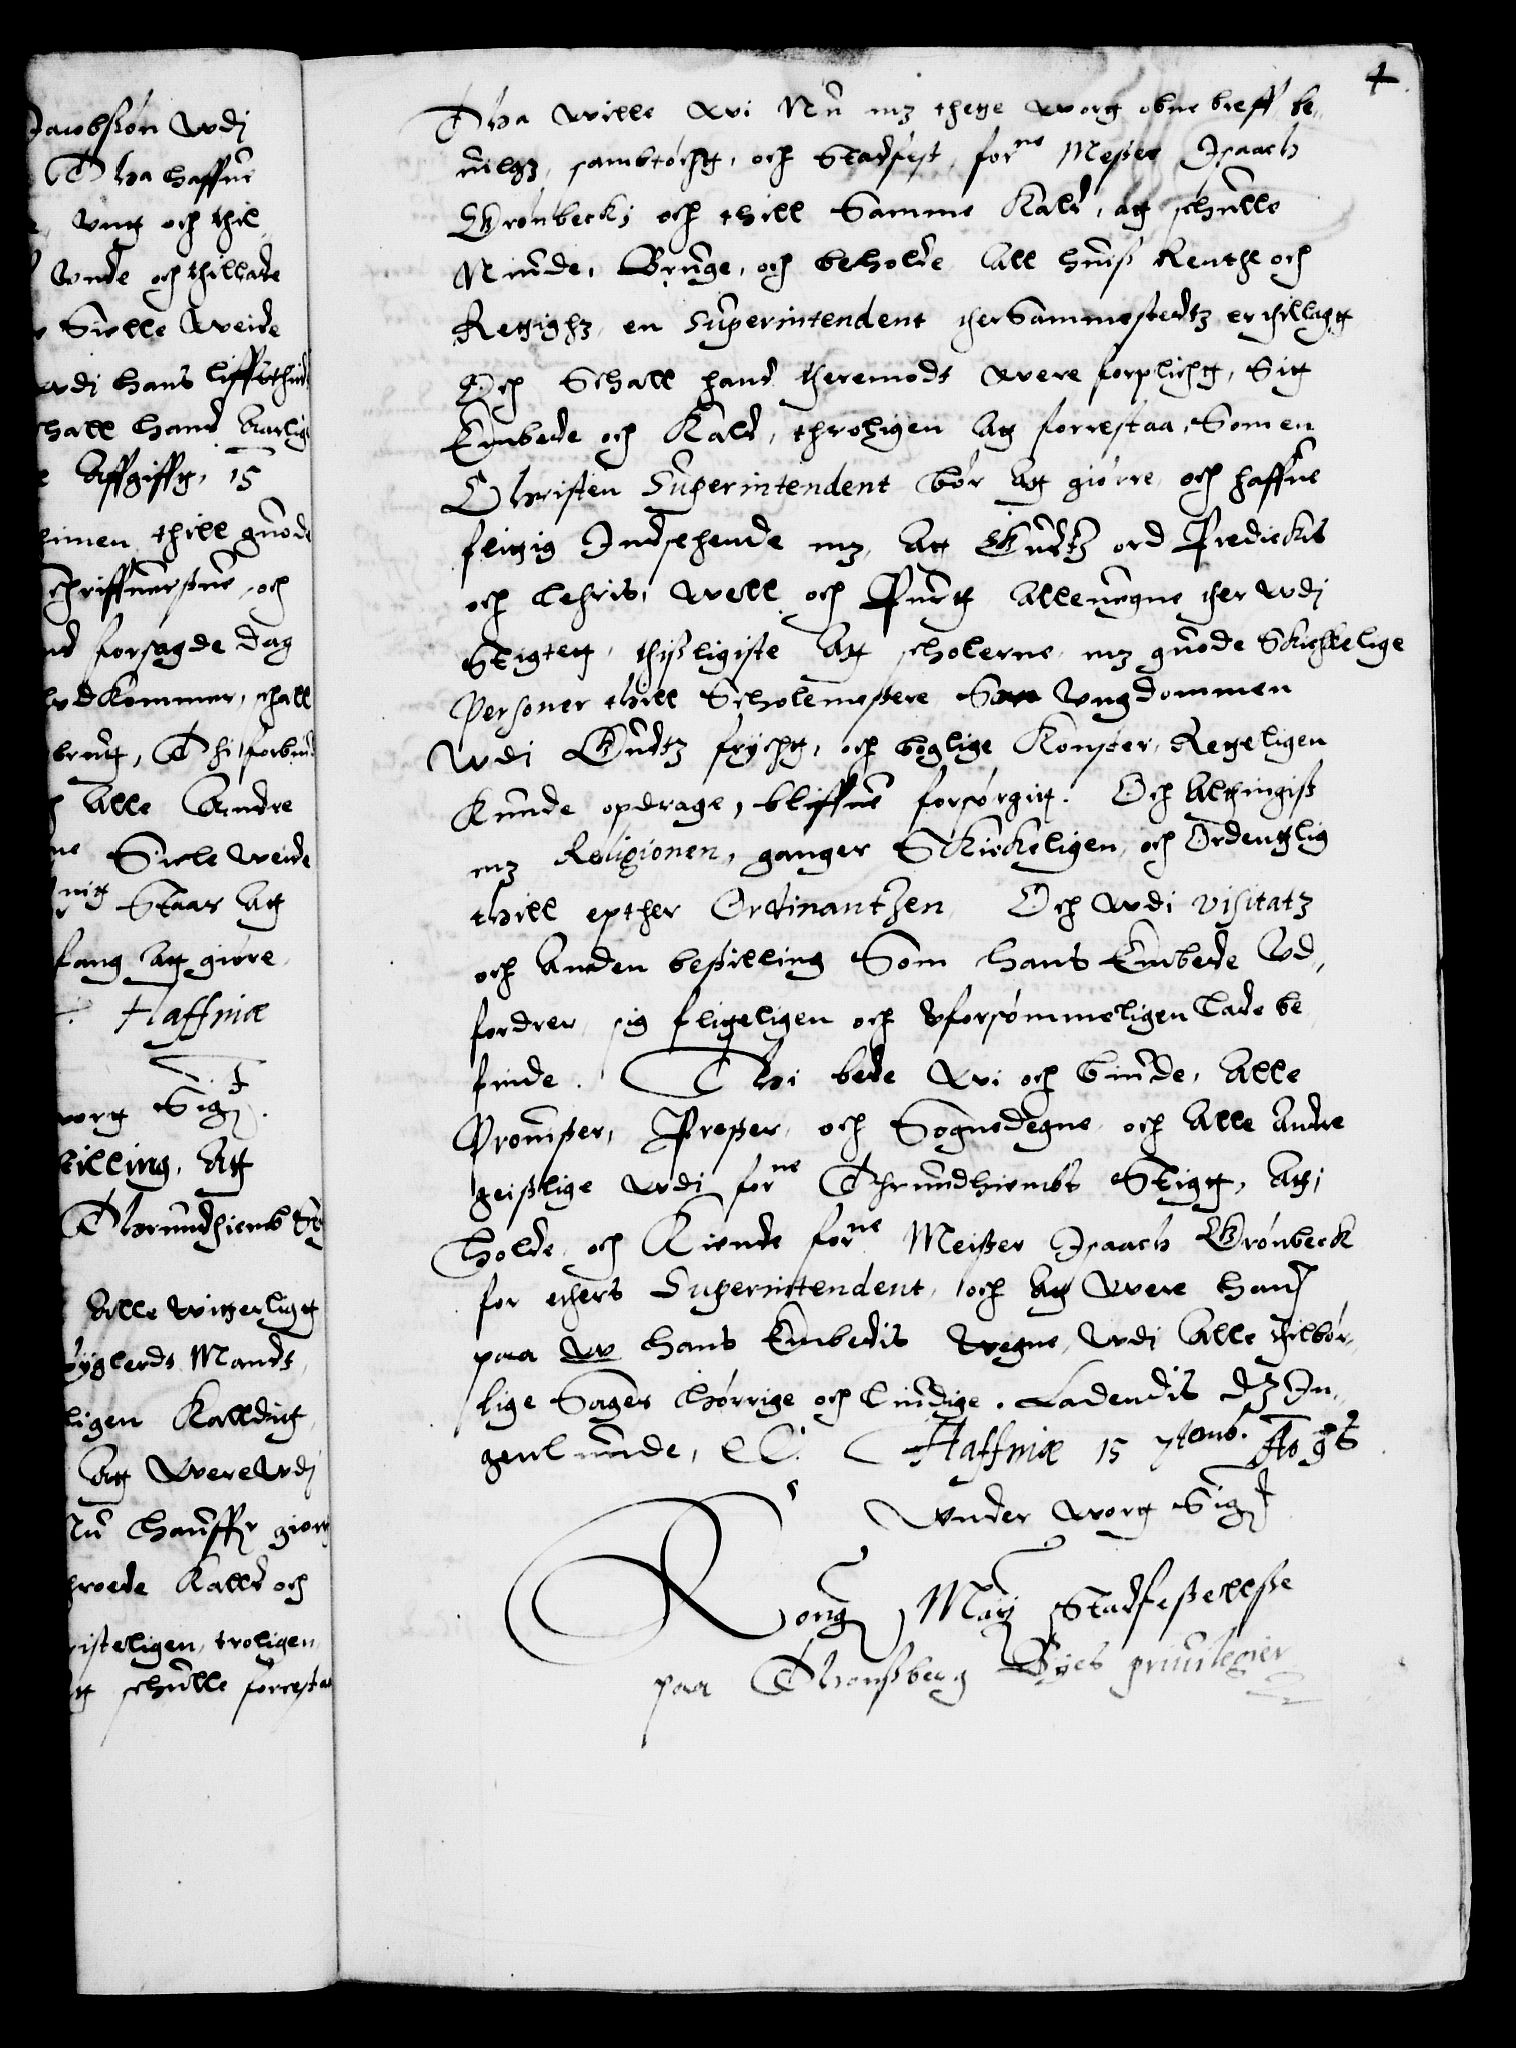 Jacobsøn wdj
Tha haffue
wnt och thil
wnde och thillade
Sielle weide
wdi hans liffs thid
schall hand Aarlig
Affgifft, 15
thill gode
schriffuerstue, och
forsagde dag
wdkommer, schall
brugt, Thi forbiud
Alle Andre
ne Siele weide
Staar At
fang At giøre
Haffniæ
wort Sig.
billing, At
Thrundhiemb St
Alle witterligt
Mandt,
ligen Kalldet,
At were wdj
Nu haffr giort
Kalld och
risteligen, troligen
schulle forresta
4
Tha wille wi Nu mz thette wort obne breff be¬
uilgz, sambtøcht, och Stadfest, forne Mester Isaach
Grønbeck, och thill Samme Kald, at schulle
Niude, Bruge, och beholde All huis Renthe och
Rettighz, en Superintendent ther Sammestedtz er thillagt
Och Schall hand theremodt were forplicht, Sit
Embede och Kald, throligen At forrestaa, Som en
Christen Superintendent bør At giørre och haffue
flittig Indsehende mz, At Gudtz ord Predickis
och Lehris, well och Purt Alleuegne ther wdj
Stigtet, thisligiste At scholerne mz gode Skickelige
Personer thill Scholemestere Som Ungdommen
wdi Gudtz frycht, och boglige Konster, Retteligen
Kunde opdrage, bliffue forsørgit. Och Altingist
mz Religionen, ganger Skickeligen, och Ordentlig
thill epther Ordinantzen, Och wdi visitatz
och Anden bestilling Som hans Embede Ud¬
fordrer, sig flitteligen och Uforsømmeligen lade be
finde. Thi bede wi och biude, Alle
Prouster, Prester, och Sognedegne och Alle Andre
geistlige wdi forne Thrundhiembs Stigt, At i
holde och Kiende forne Meister Isaach Grønbeck
for ethers Superintendent, och At were hand
paa hans Embedis wegne, wdi Alle tilbør¬
lige Sager hørrige och Lindige. Ladendis dz In¬
genlunde, etc. Haffniæ 15 7temb. Ao 96
Under wort Sig.
Kong. Maij Stadfestellsse
paa Thonsberg Byes priuilegier